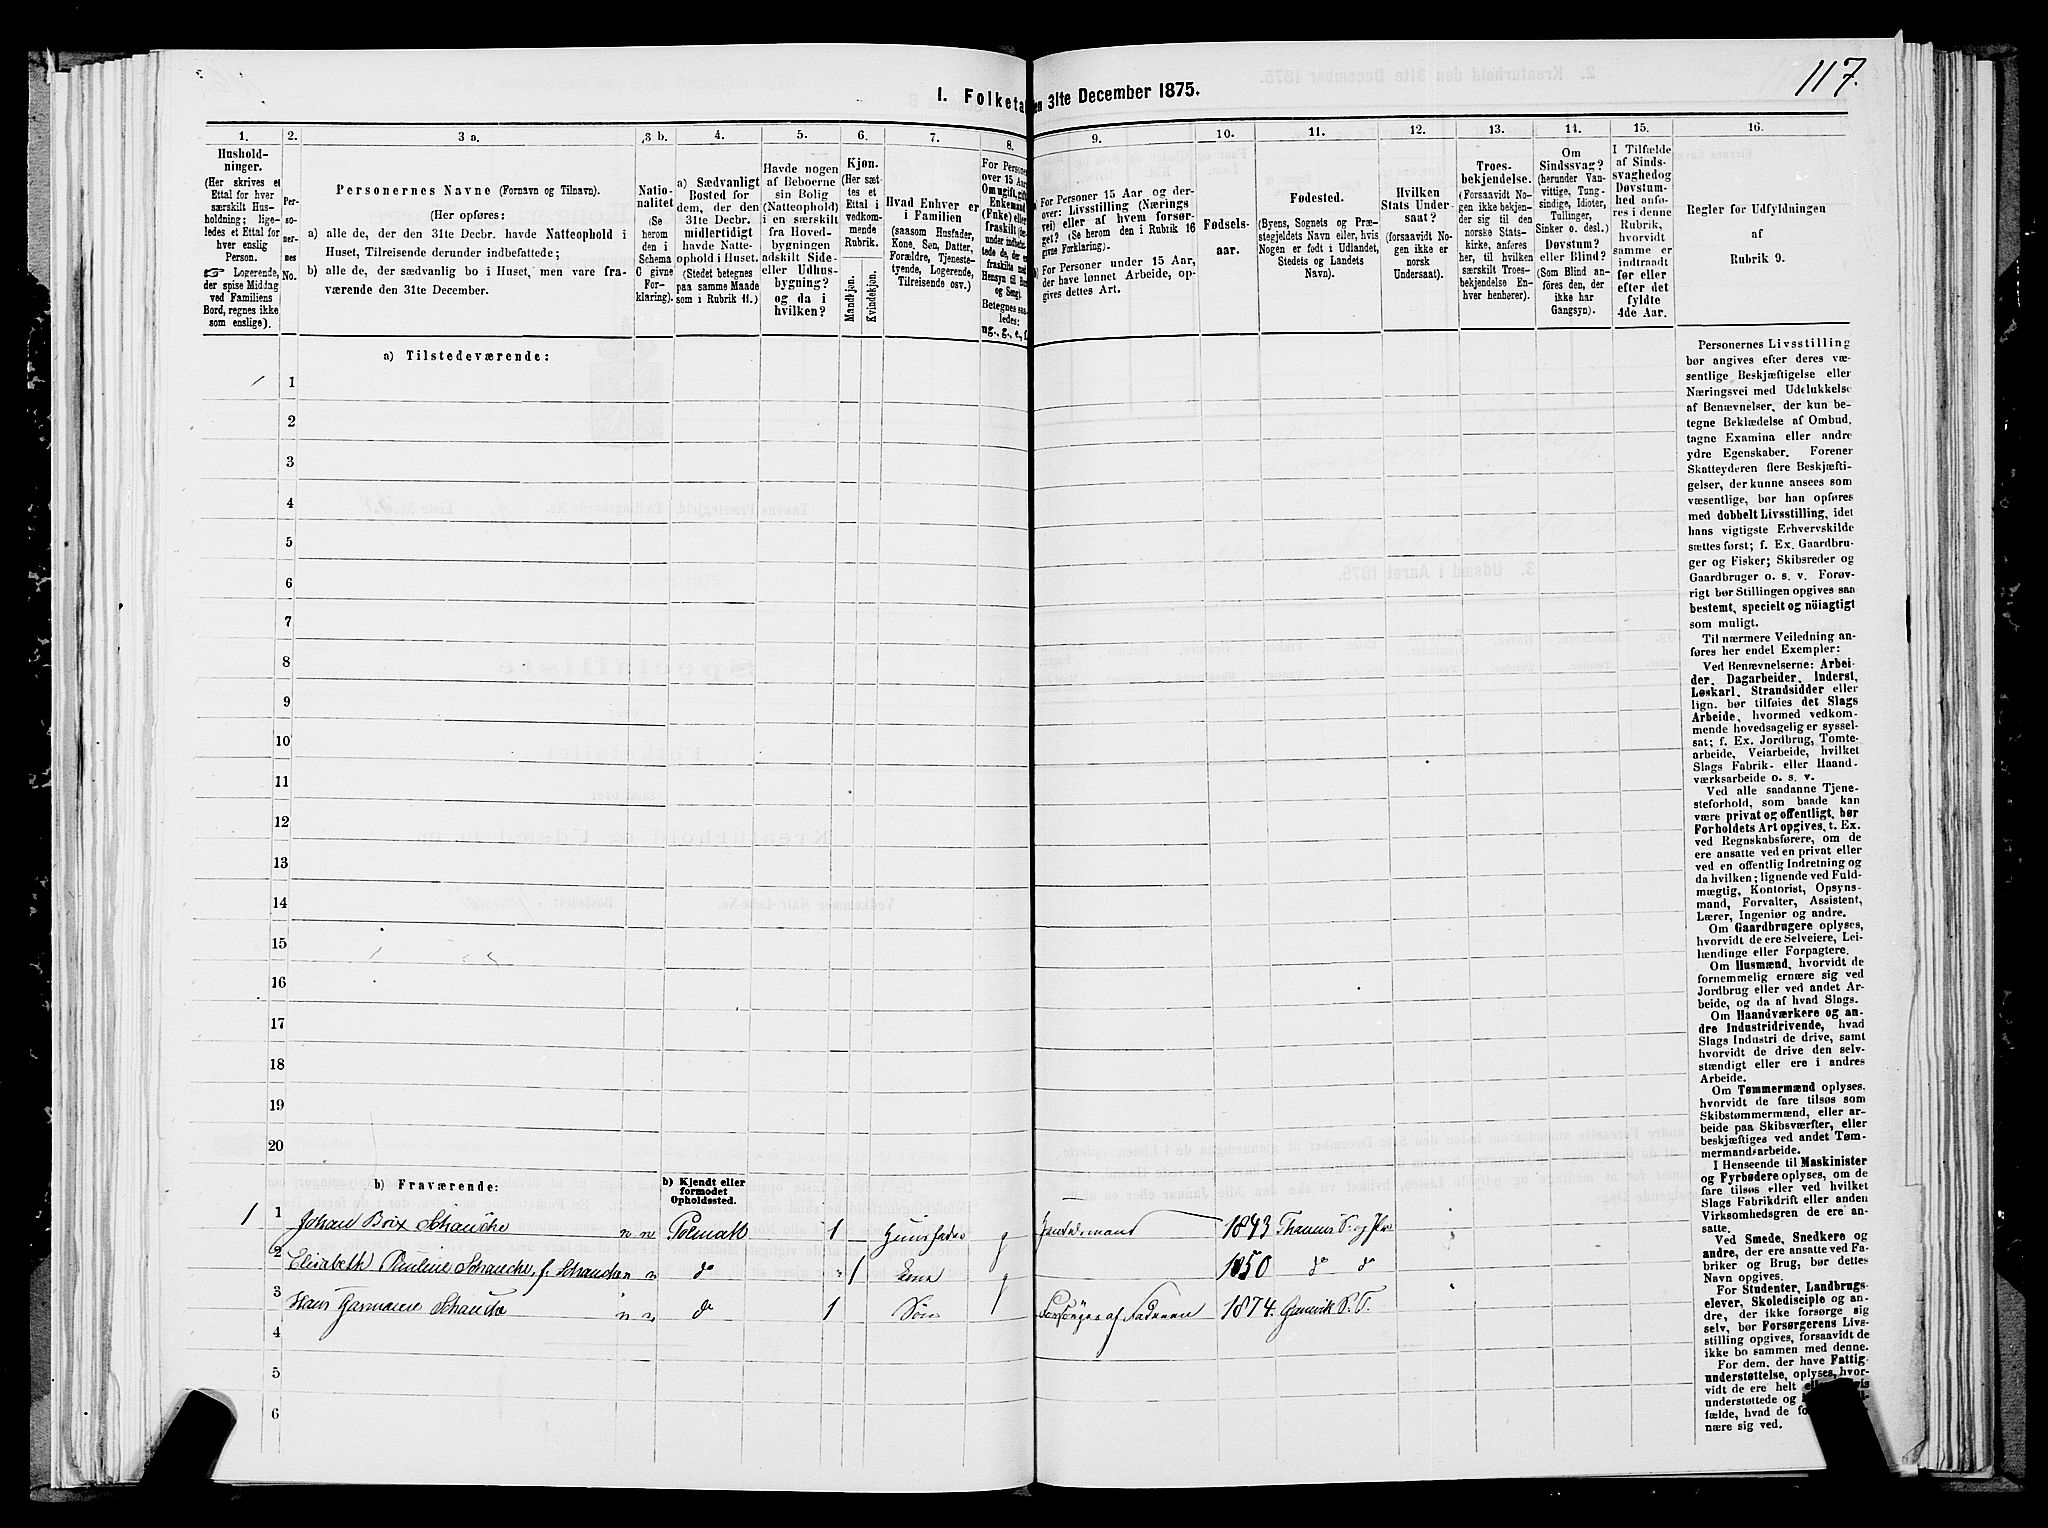 117.
I. Folketal
en 31te December 1875.
1.
Hushold-
ninger.
(Her skrives et
Ettal for hver
særskilt Hus-
holdning; lige-
ledes et Ettal for
hver enslig
Person.
☞ Logerende,
der spise Middag
ved Familiens
Bord, regnes ikke
som enslige).
2.
Per-
so-
ner-
nes
No.
3 a.
Personernes Navne (Fornavn og Tilnavn).
(Her opføres:
a) alle de, der den 31te Decbr. havde Natteophold i
Huset, Tilreisende derunder indbefattede;
b) alle de, der sædvanlig bo i Huset, men vare fra-
værende den 31te December.
3 b.
Natio-
nalitet
(Se
herom
den i
Schema
C givne
For-
klaring).
4.
a) Sædvanligt
Bosted for
dem, der den
31te Decbr.
midlertidigt
havde Natte-
ophold i Huset.
(Stedet betegnes
paa samme Maade
som i Rubrik 11.)
5.
Havde nogen
af Beboerne
sin Bolig
(Natteophold)
i en særskilt
fra Hoved-
bygningen
adskilt Side-
eller Udhus-
bygning?
og da i
hvilken?
6.
Kjøn.
(Her sæt-
tes et
Ettal i
vedkom-
mende
Rubrik.
Mandkjøn.
Kvindekjøn.
7.
Hvad Enhver er
i Familien
(saasom Husfader,
Kone, Søn, Datter,
Forældre, Tjeneste-
tyende, Logerende,
Tilreisende osv.)
8.
For Personer
over 15 Aar:
Om ugift, gift,
Enkemand
(Enke) eller
fraskilt
Betegnes saa-
ledes:
ug., g., e., f.
9.
a) For Personer 15 Aar og der-
over: Livsstilling (Nærings
vei) eller af hvem forsør-
get? (Se herom den i Rubrik 16
givne Forklaring).
b) For Personer under 15 Aar,
der have lønnet Arbeide, op-
gives dettes Art.
10.
Fødsels-
aar.
11.
Fødested.
(Byens, Sognets og Præ-
stegjeldets Navn eller, hvis
Nogen er født i Udlandet,
Stedets og Landets
Navn).
12.
Hvilken
Stats Under-
saat?
(forsaavidt No-
gen ikke er
norsk
Undersaat).
13.
Troes-
bekjendelse.
(Forsaavidt No-
gen ikke bekjen-
der sig til den
norske Stats-
kirke, anføres
her, til hvilken
særskilt Troes-
bekjendelse En-
hver henhører).
14.
Om
Sindssvag?
(herunder Van-
vittige, Tung-
sindige, Idioter,
Tullinger,
Sinker o. desl.)
Døvstum?
eller Blind?
(Som Blind an-
føres den, der
ikke har
Gangsyn).
15.
I Tilfælde
af Sinds-
svaghed og
Døvstum-
hed anfø-
res i denne
Rubrik,
hvorvidt
samme er
indtraadt
før eller
efter det
fyldte
4de Aar.
16.
Regler for Udfyldningen
af
Rubrik 9.
a) Tilstedeværende:
1
2
3
4
5
6
7
8
9
10
11
12
13
14
15
16
17
18
19
20
Personernes Livsstilling
bør angives efter deres væ-
sentlige Beskjæftigelse eller
Næringsvei med Udelukkelse
af Benævnelser, der kun be-
tegne Beklædelse af Ombud,
tagne Examina eller andre
ydre Egenskaber. Forener
Skatteyderen flere Beskjæfti-
gelser, der kunne ansees som
væsentlige, bør han opføres
med dobbelt Livsstilling, idet
hans vigtigste Erhvervskilde
sættes først; f. Ex. Gaardbru-
ger og Fisker; Skibsreder og
Gaardbruger o. s. v. Forøv-
rigt bør Stillingen opgives saa
bestemt, specielt og nöiagtigt
som muligt.
Til nærmere Veiledning an-
føres her endel Exempler:
Ved Benævnelserne: Arbei-
der, Dagarbeider, Inderst,
Løskarl, Strandsidder eller
lign. bør tilføies det Slags
Arbeide, hvormed vedkom-
mende hovedsagelig er syssel-
sat; f. Ex. Jordbrug, Tomte-
arbeide, Veiarbeide, hvilket
Slags Fabrik- eller Haand-
værksarbeide o. s. v.
Ved alle saadanne Tjene-
steforhold, som baade kan
være privat og offentligt, bør
Forholdets Art opgives, t. Ex.
ved Regnskabsførere, om de
ere ansatte ved en privat eller
ved en offentlig Indretning og
da hvilken; lignende ved Fuld-
mægtig, Kontorist, Opsyns-
mand, Forvalter, Assistent,
Lærer, Ingeniør og andre.
Om Gaardbrugere oplyses,
hvorvidt de ere Selveiere, Lei-
lændinge eller Forpagtere.
Om Husmænd, hvorvidt de
fornemmelig ernære sig ved
Jordbrug eller ved andet Ar-
beide, og da af hvad Slags.
Om Haandværkere og an-
dre Industridrivende, hvad
Slags Industri de drive, samt
hvorvidt de drive den selv-
stændigt eller ere i andres
Arbeide.
Om Tømmermænd oplyses,
hvorvidt de fare tilsøs som
Skibstømmermænd, eller ar-
beide paa Skibsværfter, eller
beskjæftiges ved andet Tøm-
mermandsarbeide.
I Henseende til Maskinister
og Fyrbødere oplyses, om de
fare tilsøs eller ved hvilket
Slags Fabrikdrift eller anden
Virksomhedsgren de ere an-
satte.
Ved Smede, Snedkere og
andre, der ere ansatte ved Fa-
briker og Brug, bør dettes
Navn opgives.
For Studenter, Landbrugs-
elever, Skoledisciple og an-
dre, der ikke forsørge sig
selv, bør Forsørgerens Livs-
stilling opgives, forsaavidt de
ikke bo sammen med denne.
For dem, der have Fattig-
understøttelse, oplyses, hvor-
vidt de ere helt
understøttede og i
fælde, hvad de
nære sig ved.
b) Fraværende:
b) Kjendt eller
formodet
Opholdssted.
1 1 Johan Brix Schanche n n Polmak 1 Huusfader g Handelsmand 1843 Thanens S. og Pr
2 Elisabeth Pauline Schanche, f. Schanche n n do 1 Kone g 1850 do do
3 Hans Schanche n n do 1 Søn Forsørges af Faderen 1874. Gamvik S. T.
4
5
6